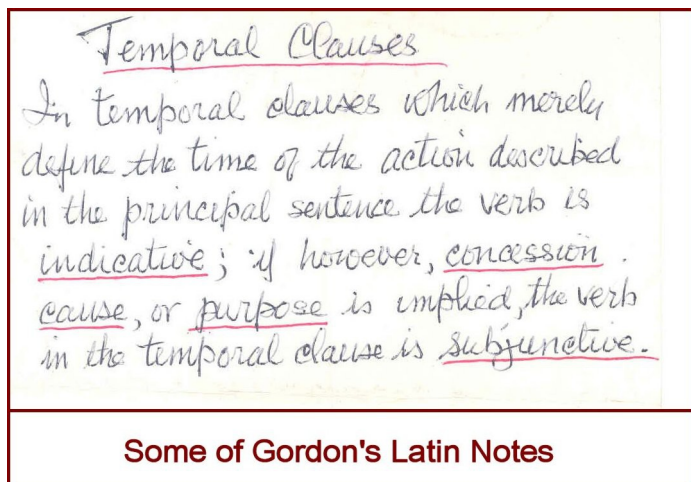 Temporal Clauses
In temporal clauses which merely
define the time of the action described
in the principal sentence the verb is
indicative; if however, concession.
cause, or purpose is implied, the verb
in the temporal clause is subjunctive.
Some of Gordon's Latin Notes